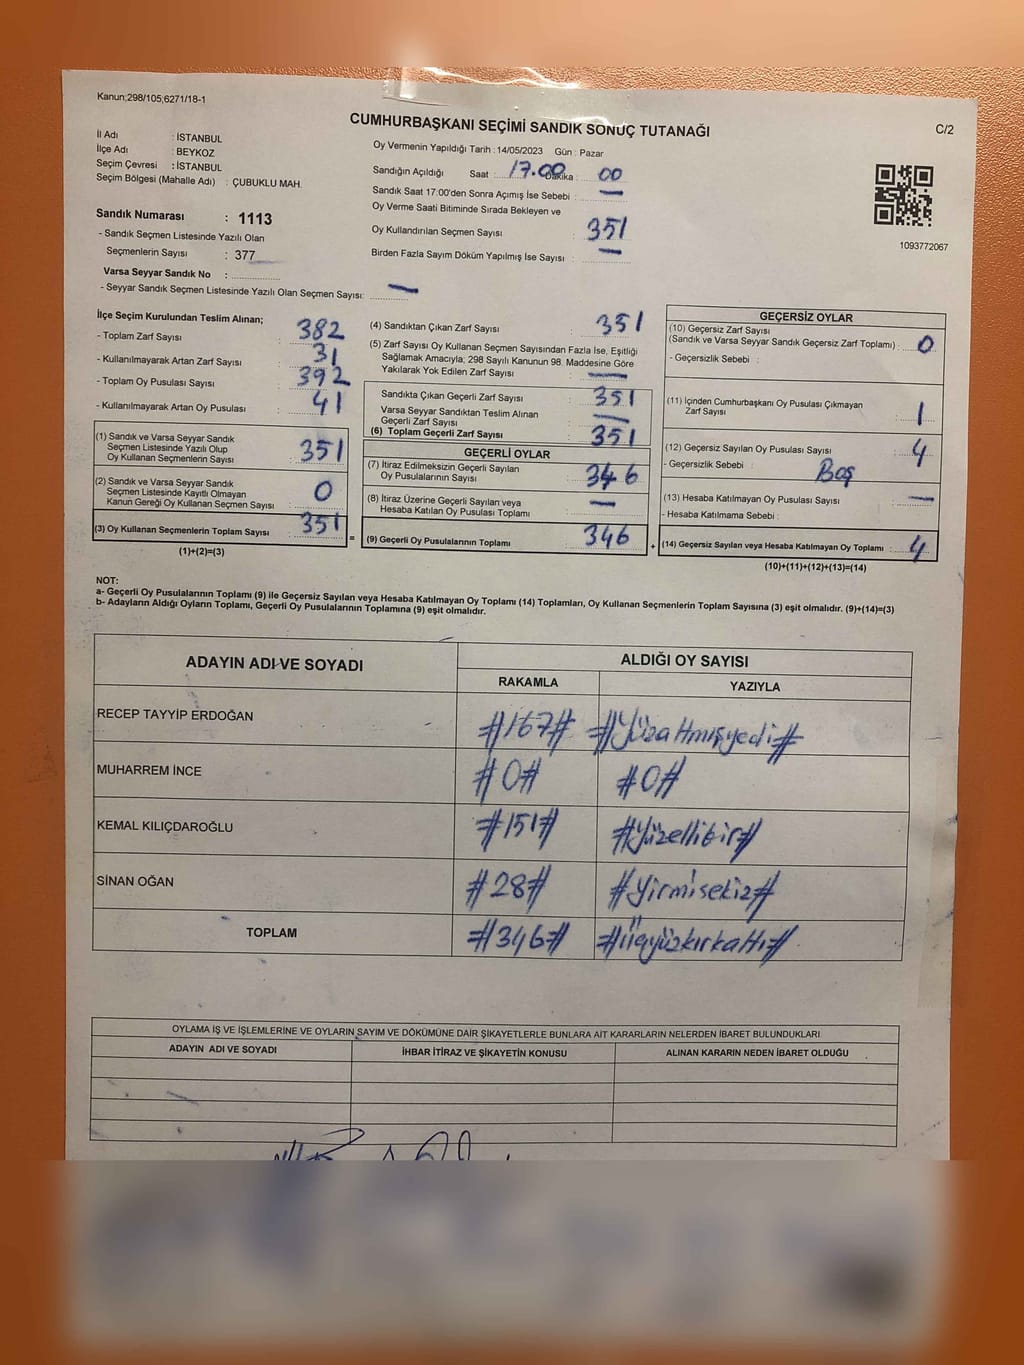 Kanun;298/105;6271/18-1
C/2
CUMHURBAŞKANI SEÇİMİ SANDIK SONUÇ TUTANAĞI
İl Adı : İSTANBUL
İlçe Adı : BEYKOZ
Seçim Çevresi : İSTANBUL
Seçim Bölgesi (Mahalle Adı) : ÇUBUKLU MAH.
Sandık Numarası : 1113
- Sandık Seçmen Listesinde Yazılı Olan
Seçmenlerin Sayısı : 377
Varsa Seyyar Sandık No :
- Seyyar Sandık Seçmen Listesinde Yazılı Olan Seçmen Sayısı: —
Oy Vermenin Yapıldığı Tarih : 14/05/2023 Gün : Pazar
Sandığın Açıldığı Saat : 17.00 Dakika : 00
Sandık Saat 17:00'den Sonra Açımış İse Sebebi : —
Oy Verme Saati Bitiminde Sırada Bekleyen ve
Oy Kullandırılan Seçmen Sayısı : 351
Birden Fazla Sayım Döküm Yapılmış İse Sayısı : —
1093772067
İlçe Seçim Kurulundan Teslim Alınan;
- Toplam Zarf Sayısı : 382
- Kullanılmayarak Artan Zarf Sayısı : 31
- Toplam Oy Pusulası Sayısı : 392
- Kullanılmayarak Artan Oy Pusulası : 41
(1) Sandık ve Varsa Seyyar Sandık
Seçmen Listesinde Yazılı Olup
Oy Kullanan Seçmenlerin Sayısı : 351
(2) Sandık ve Varsa Seyyar Sandık
Seçmen Listesinde Kayıtlı Olmayan
Kanun Gereği Oy Kullanan Seçmen Sayısı : 0
(3) Oy Kullanan Seçmenlerin Toplam Sayısı : 351
(1)+(2)=(3)
(4) Sandıktan Çıkan Zarf Sayısı : 351
(5) Zarf Sayısı Oy Kullanan Seçmen Sayısından Fazla İse, Eşitliği
Sağlamak Amacıyla; 298 Sayılı Kanunun 98. Maddesine Göre
Yakılarak Yok Edilen Zarf Sayısı : —
Sandıkta Çıkan Geçerli Zarf Sayısı : 351
Varsa Seyyar Sandıktan Teslim Alınan
Geçerli Zarf Sayısı : —
(6) Toplam Geçerli Zarf Sayısı : 351
GEÇERLİ OYLAR
(7) İtiraz Edilmeksizin Geçerli Sayılan
Oy Pusulalarının Sayısı : 346
(8) İtiraz Üzerine Geçerli Sayılan veya
Hesaba Katılan Oy Pusulası Toplamı : —
= (9) Geçerli Oy Pusulalarının Toplamı : 346
GEÇERSİZ OYLAR
(10) Geçersiz Zarf Sayısı
(Sandık ve Varsa Seyyar Sandık Geçersiz Zarf Toplamı) : 0
- Geçersizlik Sebebi :
(11) İçinden Cumhurbaşkanı Oy Pusulası Çıkmayan
Zarf Sayısı : 1
(12) Geçersiz Sayılan Oy Pusulası Sayısı : 4
- Geçersizlik Sebebi : Boş
(13) Hesaba Katılmayan Oy Pusulası Sayısı : —
- Hesaba Katılmama Sebebi :
+ (14) Geçersiz Sayılan veya Hesaba Katılmayan Oy Toplamı : 4
(10)+(11)+(12)+(13)=(14)
NOT:
a- Geçerli Oy Pusulalarının Toplamı (9) ile Geçersiz Sayılan veya Hesaba Katılmayan Oy Toplamı (14) Toplamları, Oy Kullanan Seçmenlerin Toplam Sayısına (3) eşit olmalıdır. (9)+(14)=(3)
b- Adayların Aldığı Oyların Toplamı, Geçerli Oy Pusulalarının Toplamına (9) eşit olmalıdır.
ADAYIN ADI VE SOYADI ALDIĞI OY SAYISI
RAKAMLA YAZIYLA
RECEP TAYYİP ERDOĞAN #167# #Yüzaltmışyedi#
MUHARREM İNCE #0# #0#
KEMAL KILIÇDAROĞLU #151# #Yüzellibir#
SİNAN OĞAN #28# #Yirmisekiz#
TOPLAM #346# #üçyüzkırkaltı#
OYLAMA İŞ VE İŞLEMLERİNE VE OYLARIN SAYIM VE DÖKÜMÜNE DAİR ŞİKAYETLERLE BUNLARA AİT KARARLARIN NELERDEN İBARET BULUNDUKLARI
ADAYIN ADI VE SOYADI İHBAR İTİRAZ VE ŞİKAYETİN KONUSU ALINAN KARARIN NEDEN İBARET OLDUĞU